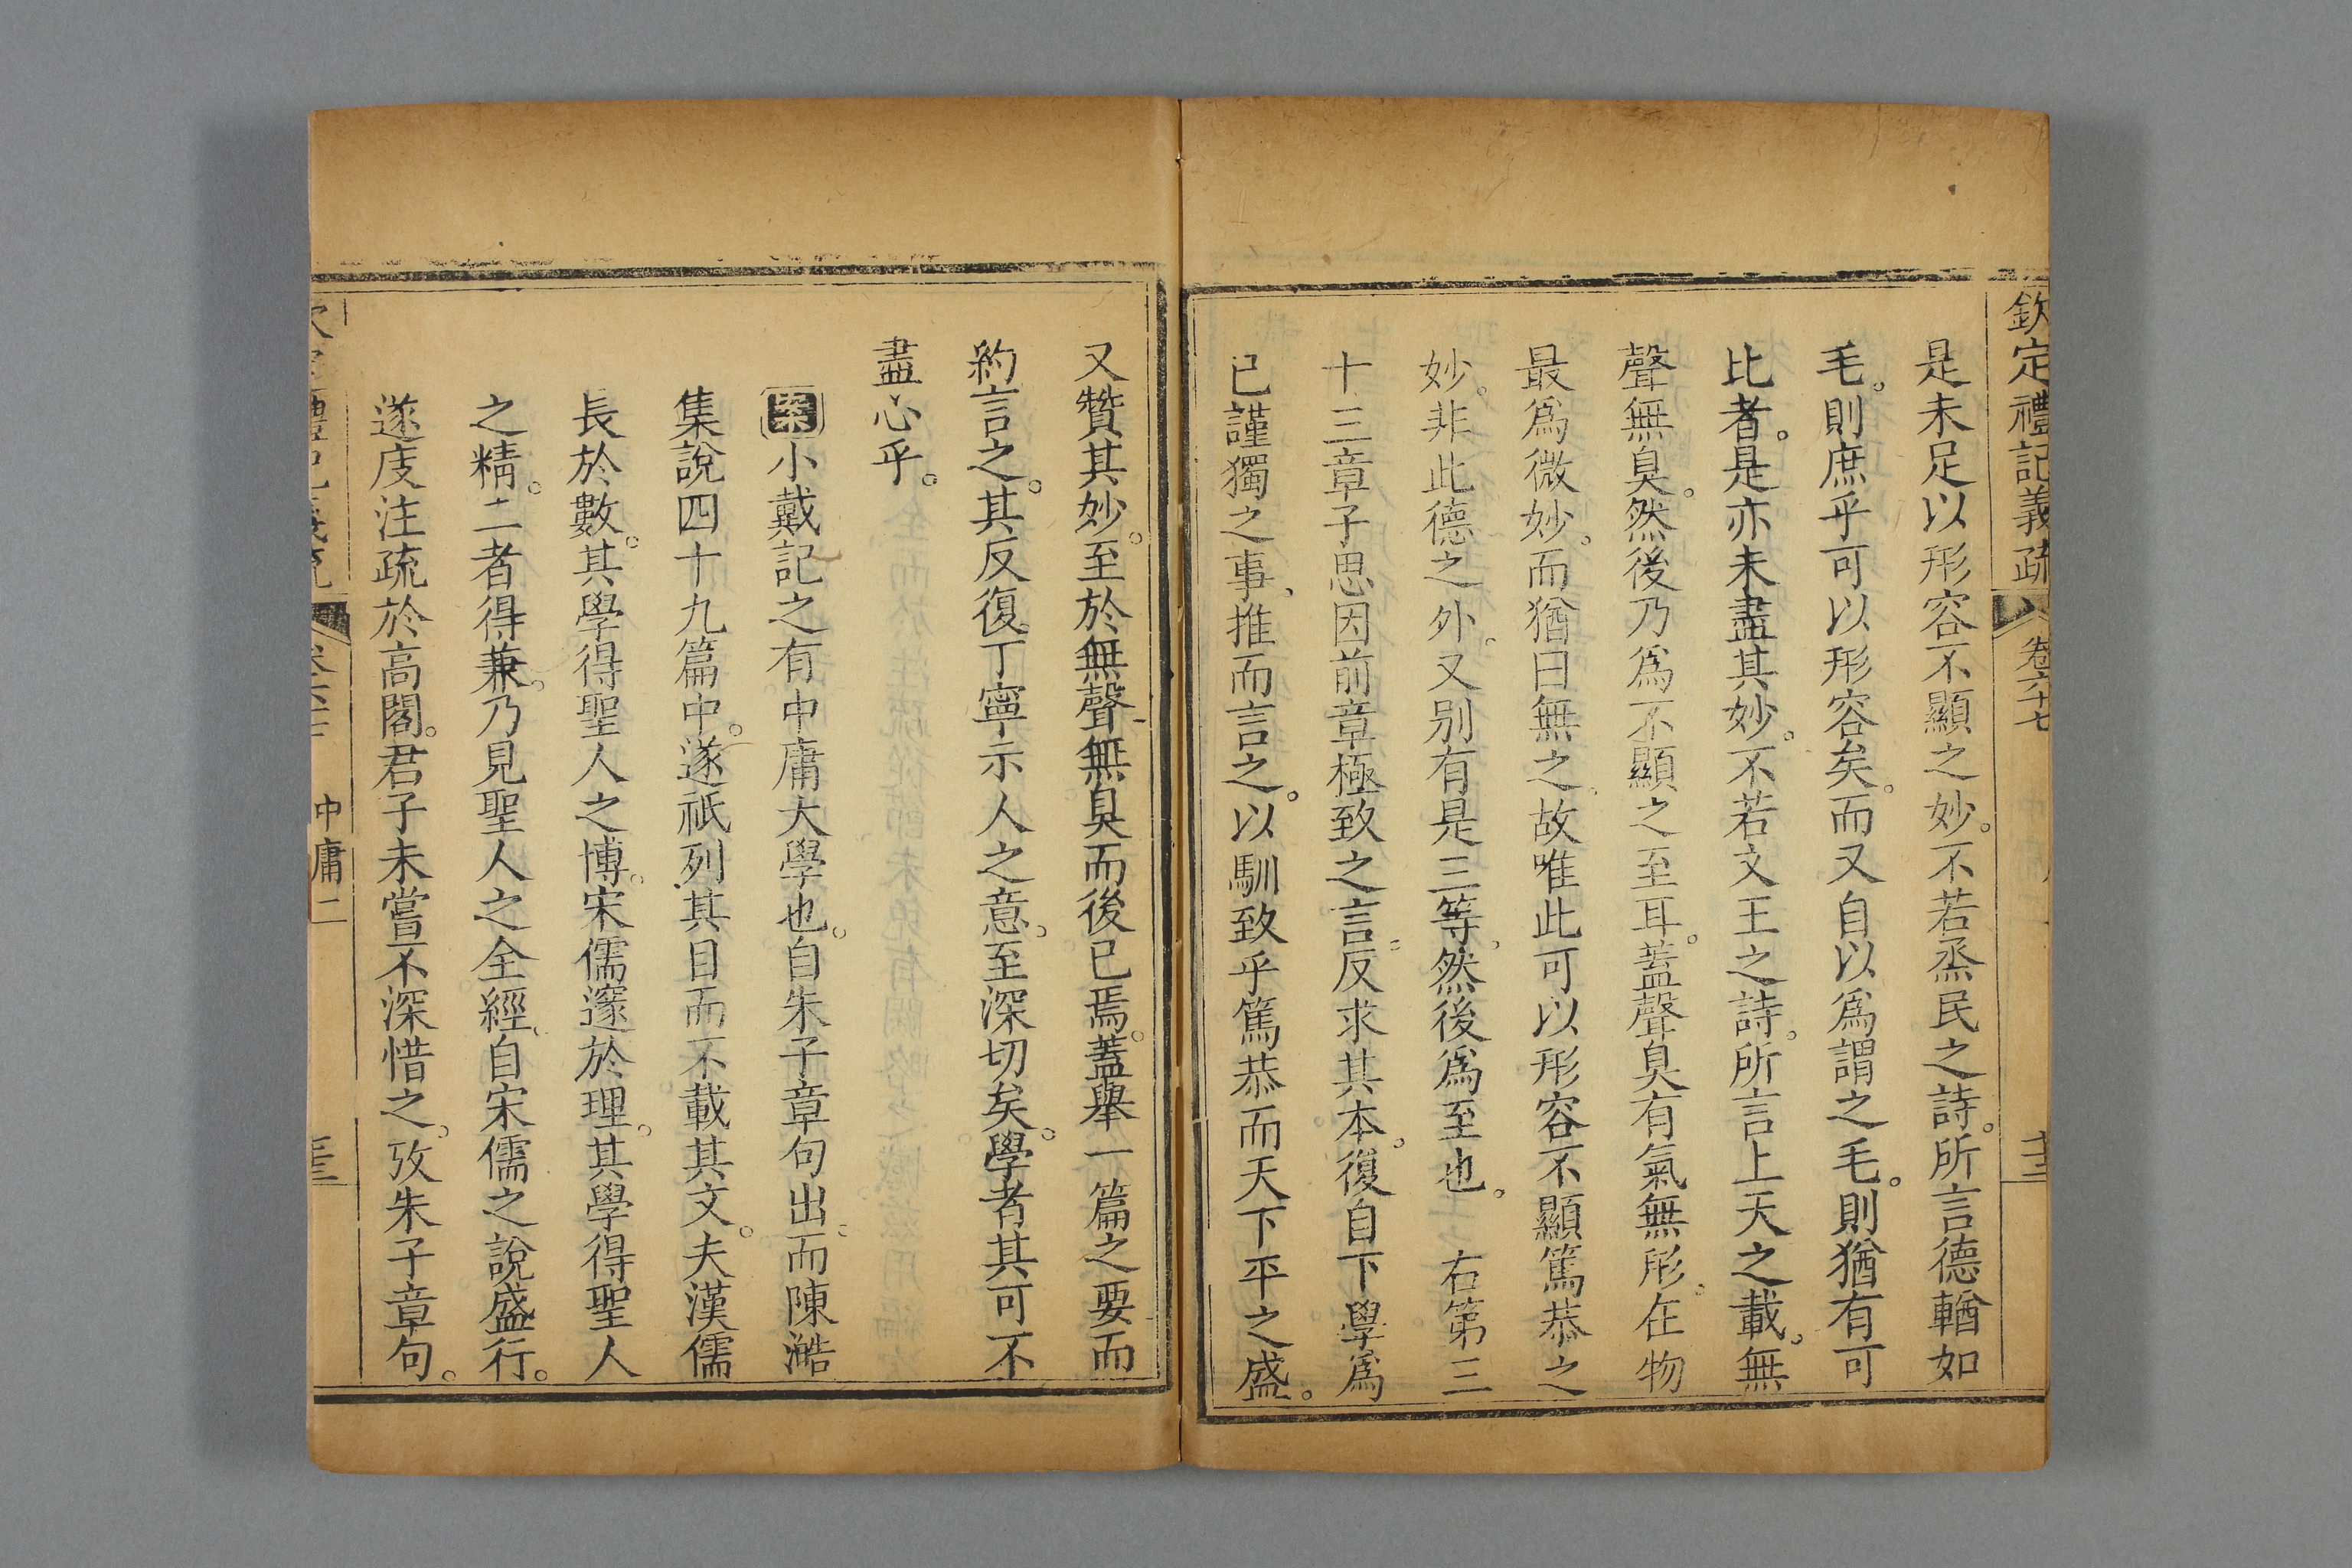 欽定禮記義疏 卷六十七
是未足以形容不顯之妙。不若烝民之詩。所言德輶如
毛。則庶乎可以形容矣。而又自以爲謂之毛。則猶有可
比者。是亦未盡其妙。不若文王之詩。所言上天之載。無
聲無臭。然後乃爲不顯之至耳。蓋聲臭有氣無形。在物
最爲微妙。而猶曰無之。故唯此可以形容不顯篤恭之
妙。非此德之外。又别有是三等。然後爲至也。 右第三
十三章子思因前章極致之言。反求其本。復自下學爲
已謹獨之事、推而言之。以馴致乎篤恭而天下平之盛。
又贊其妙。至於無聲無臭而後已焉。蓋舉一篇之要而
約言之。其反復丁寧示人之意。至深切矣。學者其可不
盡心乎。
案小戴記之有中庸大學也。自朱子章句出。而陳澔
集說四十九篇中。遂祗列其目而不載其文。夫漢儒
長於數。其學得聖人之博。宋儒邃於理。其學得聖人
之精。二者得兼。乃見聖人之全經。自宋儒之說盛行。
遂庋注疏於高閣。君子未嘗不深惜之。攷朱子章句。
中庸二